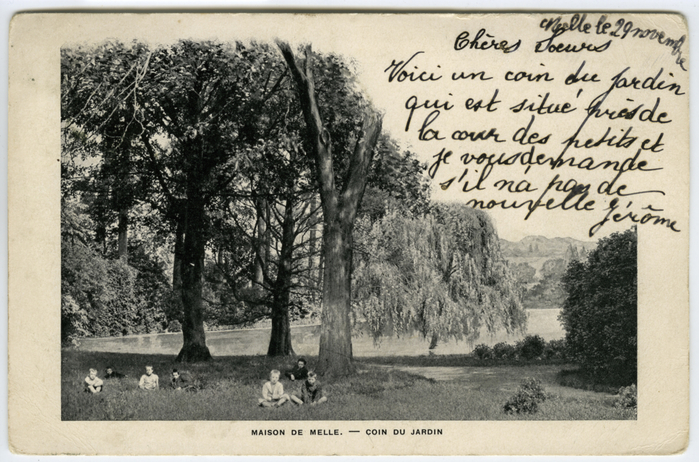 Melle le 29 novembre
Chères Soeurs
Voici un coin du jardin
qui est situé près de
la cour des petits et
je vous demande
s'il n'a pas de
nouvelle Jérôme
MAISON DE MELLE. — COIN DU JARDIN